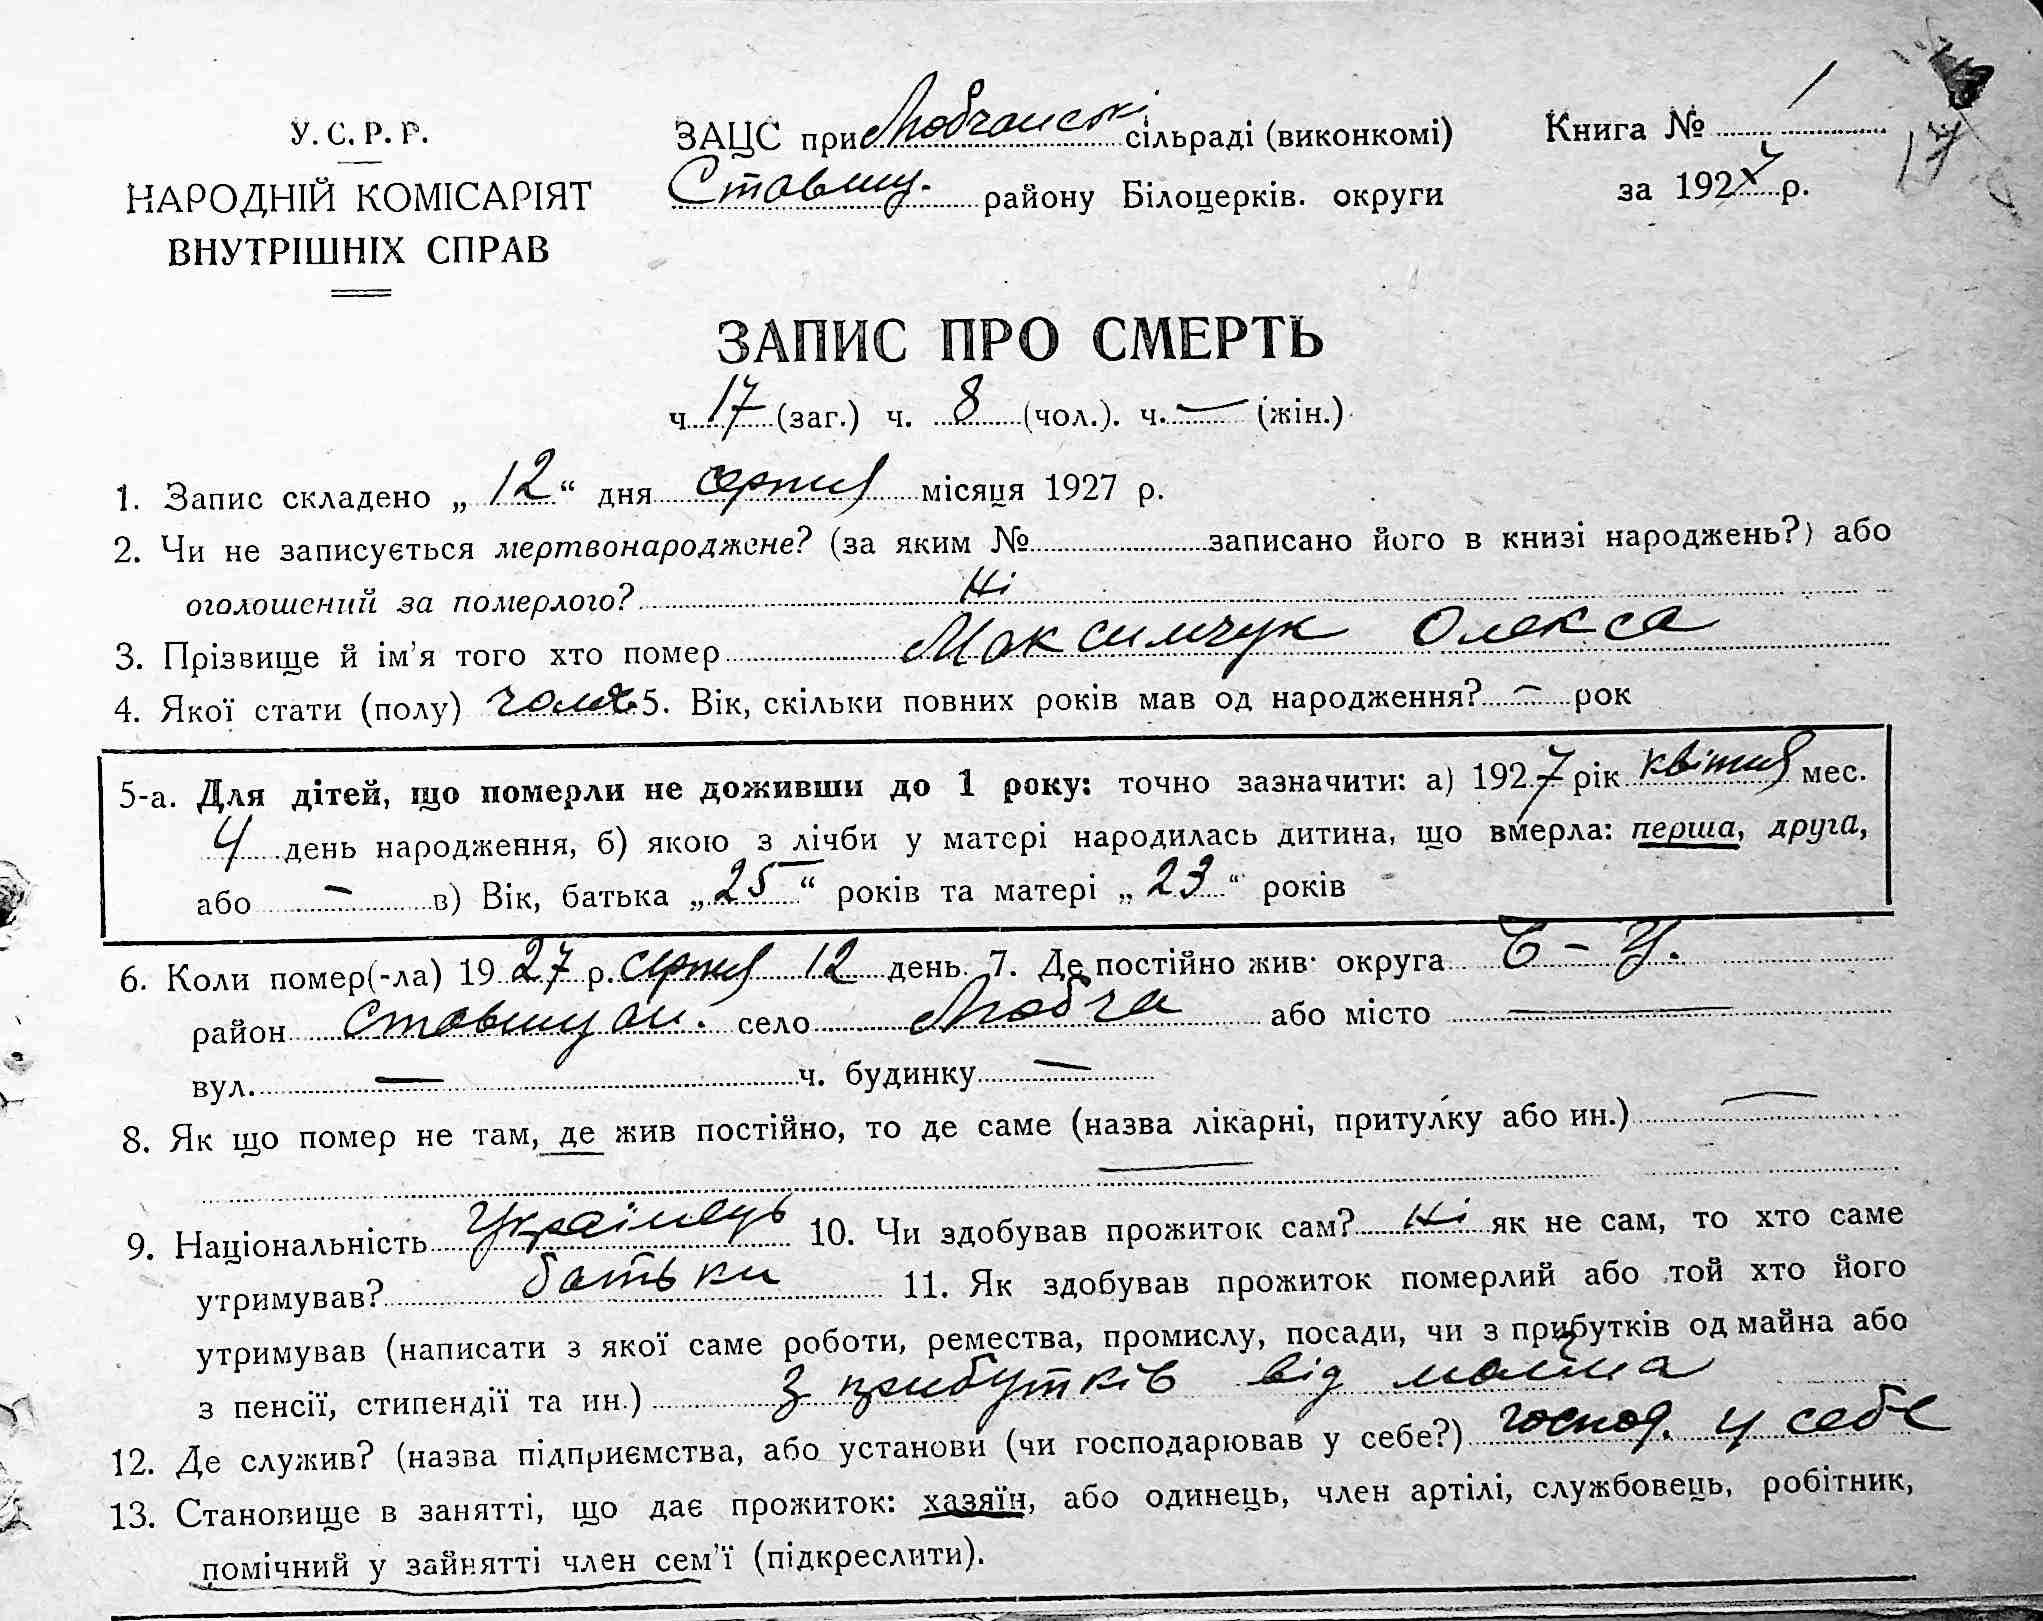 У. С. Р. Р.
НАРОДНІЙ КОМІСАРІЯТ
ВНУТРІШНІХ СПРАВ
ЗАЦС при Любчанскі сільраді (виконкомі)
Ставищ. району Білоцерків. округи
Книга № 1
за 1927 р.
17
ЗАПИС ПРО СМЕРТЬ
ч 17 (заг.) ч. 8 (чол.). ч. — (жін.)
1. Запис складено „ 12 “ дня серпня місяця 1927 р.
2. Чи не записується мертвонароджене? (за яким № записано його в книзі народжень?) або
оголошений за померлого? Ні
3. Прізвище й ім’я того хто помер Максимчук Олекса
4. Якої стати (полу) чолов 5. Вік, скільки повних років мав од народження? — рок
5-а. Для дітей, що померли не доживши до 1 року: точно зазначити: а) 1927 рік квітня мес.
4 день народження, б) якою з лічби у матері народилась дитина, що вмерла: перша, друга,
або — в) Вік, батька „ 25 “ років та матері „ 23 “ років
6. Коли помер(-ла) 1927 р. серпня 12 день 7. Де постійно жив округа Б – Ц.
район Ставищан. село Любча або місто —
вул. — ч. будинку —
8. Як що помер не там, де жив постійно, то де саме (назва лікарні, притулку або ин.) —
9. Національність Українець 10. Чи здобував прожиток сам? Ні як не сам, то хто саме
утримував? батьки 11. Як здобував прожиток померлий або той хто його
утримував (написати з якої саме роботи, ремества, промислу, посади, чи з прибутків од майна або
з пенсії, стипендії та ин.) З прибутків від майна
12. Де служив? (назва підприємства, або установи (чи господарював у себе?) господ. у себе
13. Становище в занятті, що дає прожиток: хазяїн, або одинець, член артілі, службовець, робітник,
помічний у зайнятті член сем’ї (підкреслити).